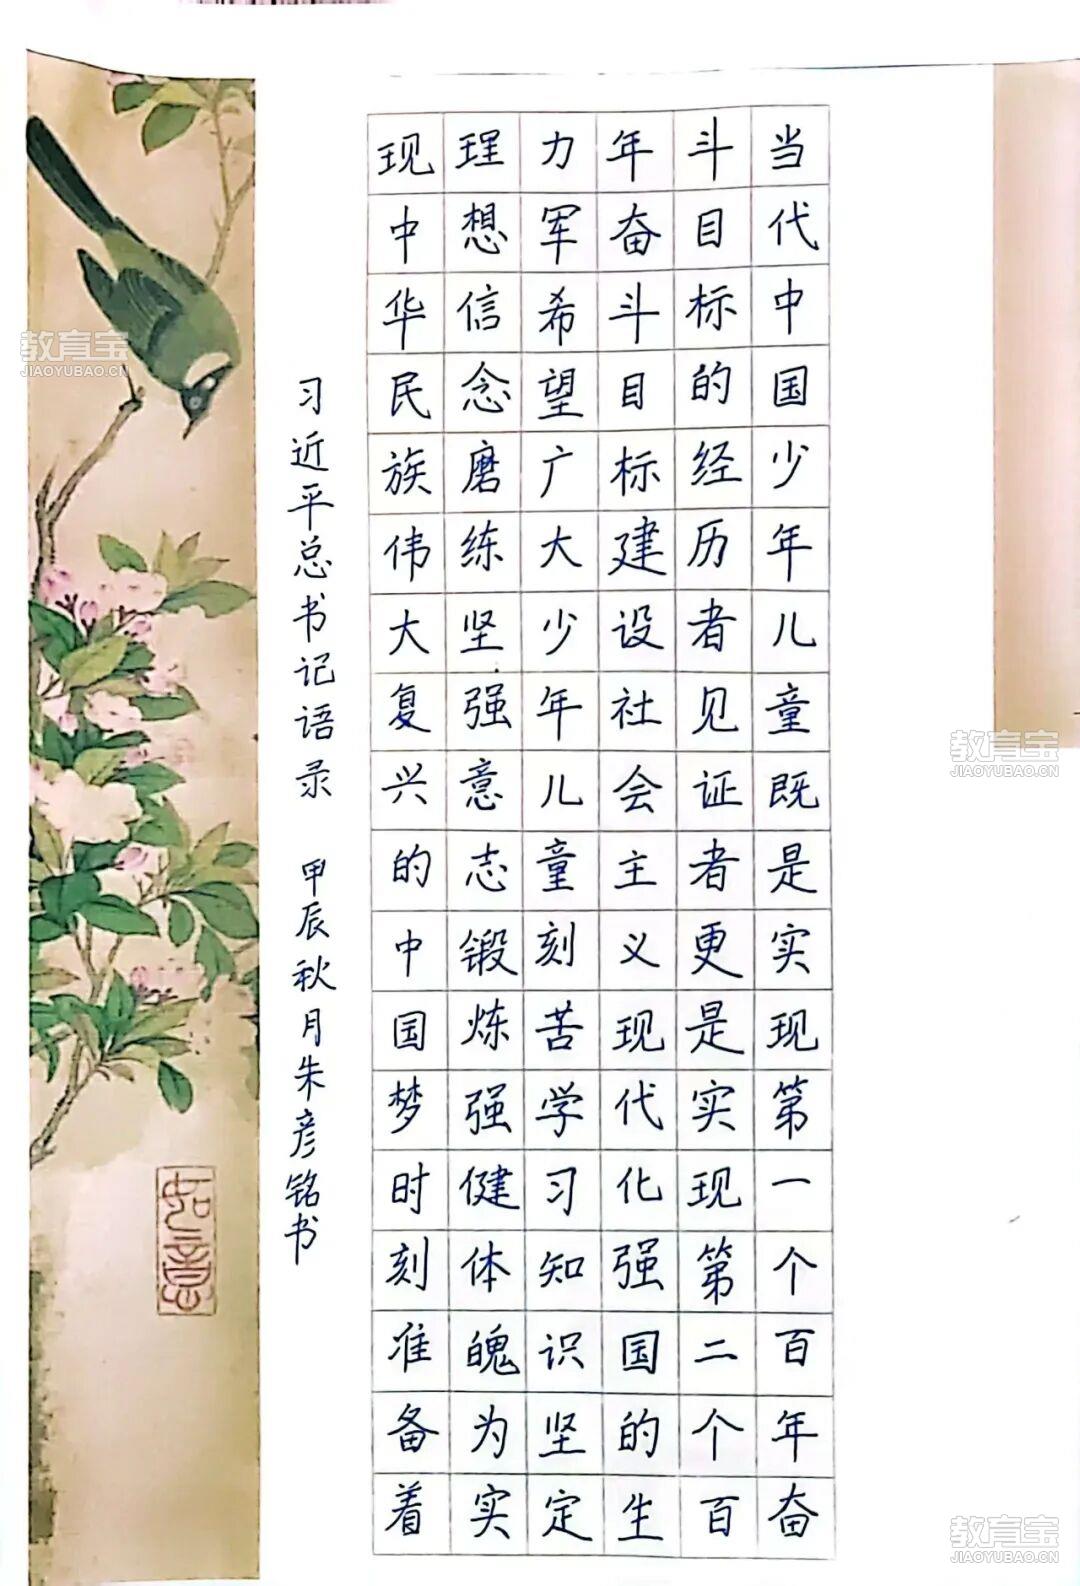 当代中国少年儿童既是实现第一个百年奋
斗目标的经历者见证者更是实现第二个百
年奋斗目标建设社会主义现代化强国的生
力军希望广大少年儿童刻苦学习知识坚定
理想信念磨练坚强意志锻炼强健体魄为实
现中华民族伟大复兴的中国梦时刻准备着
习近平总书记语录 甲辰秋月朱彦铭书
如意
教育宝
JIAOYUBAO.CN
教育宝
JIAOYUBAO.CN
教育宝
JIAOYUBAO.CN